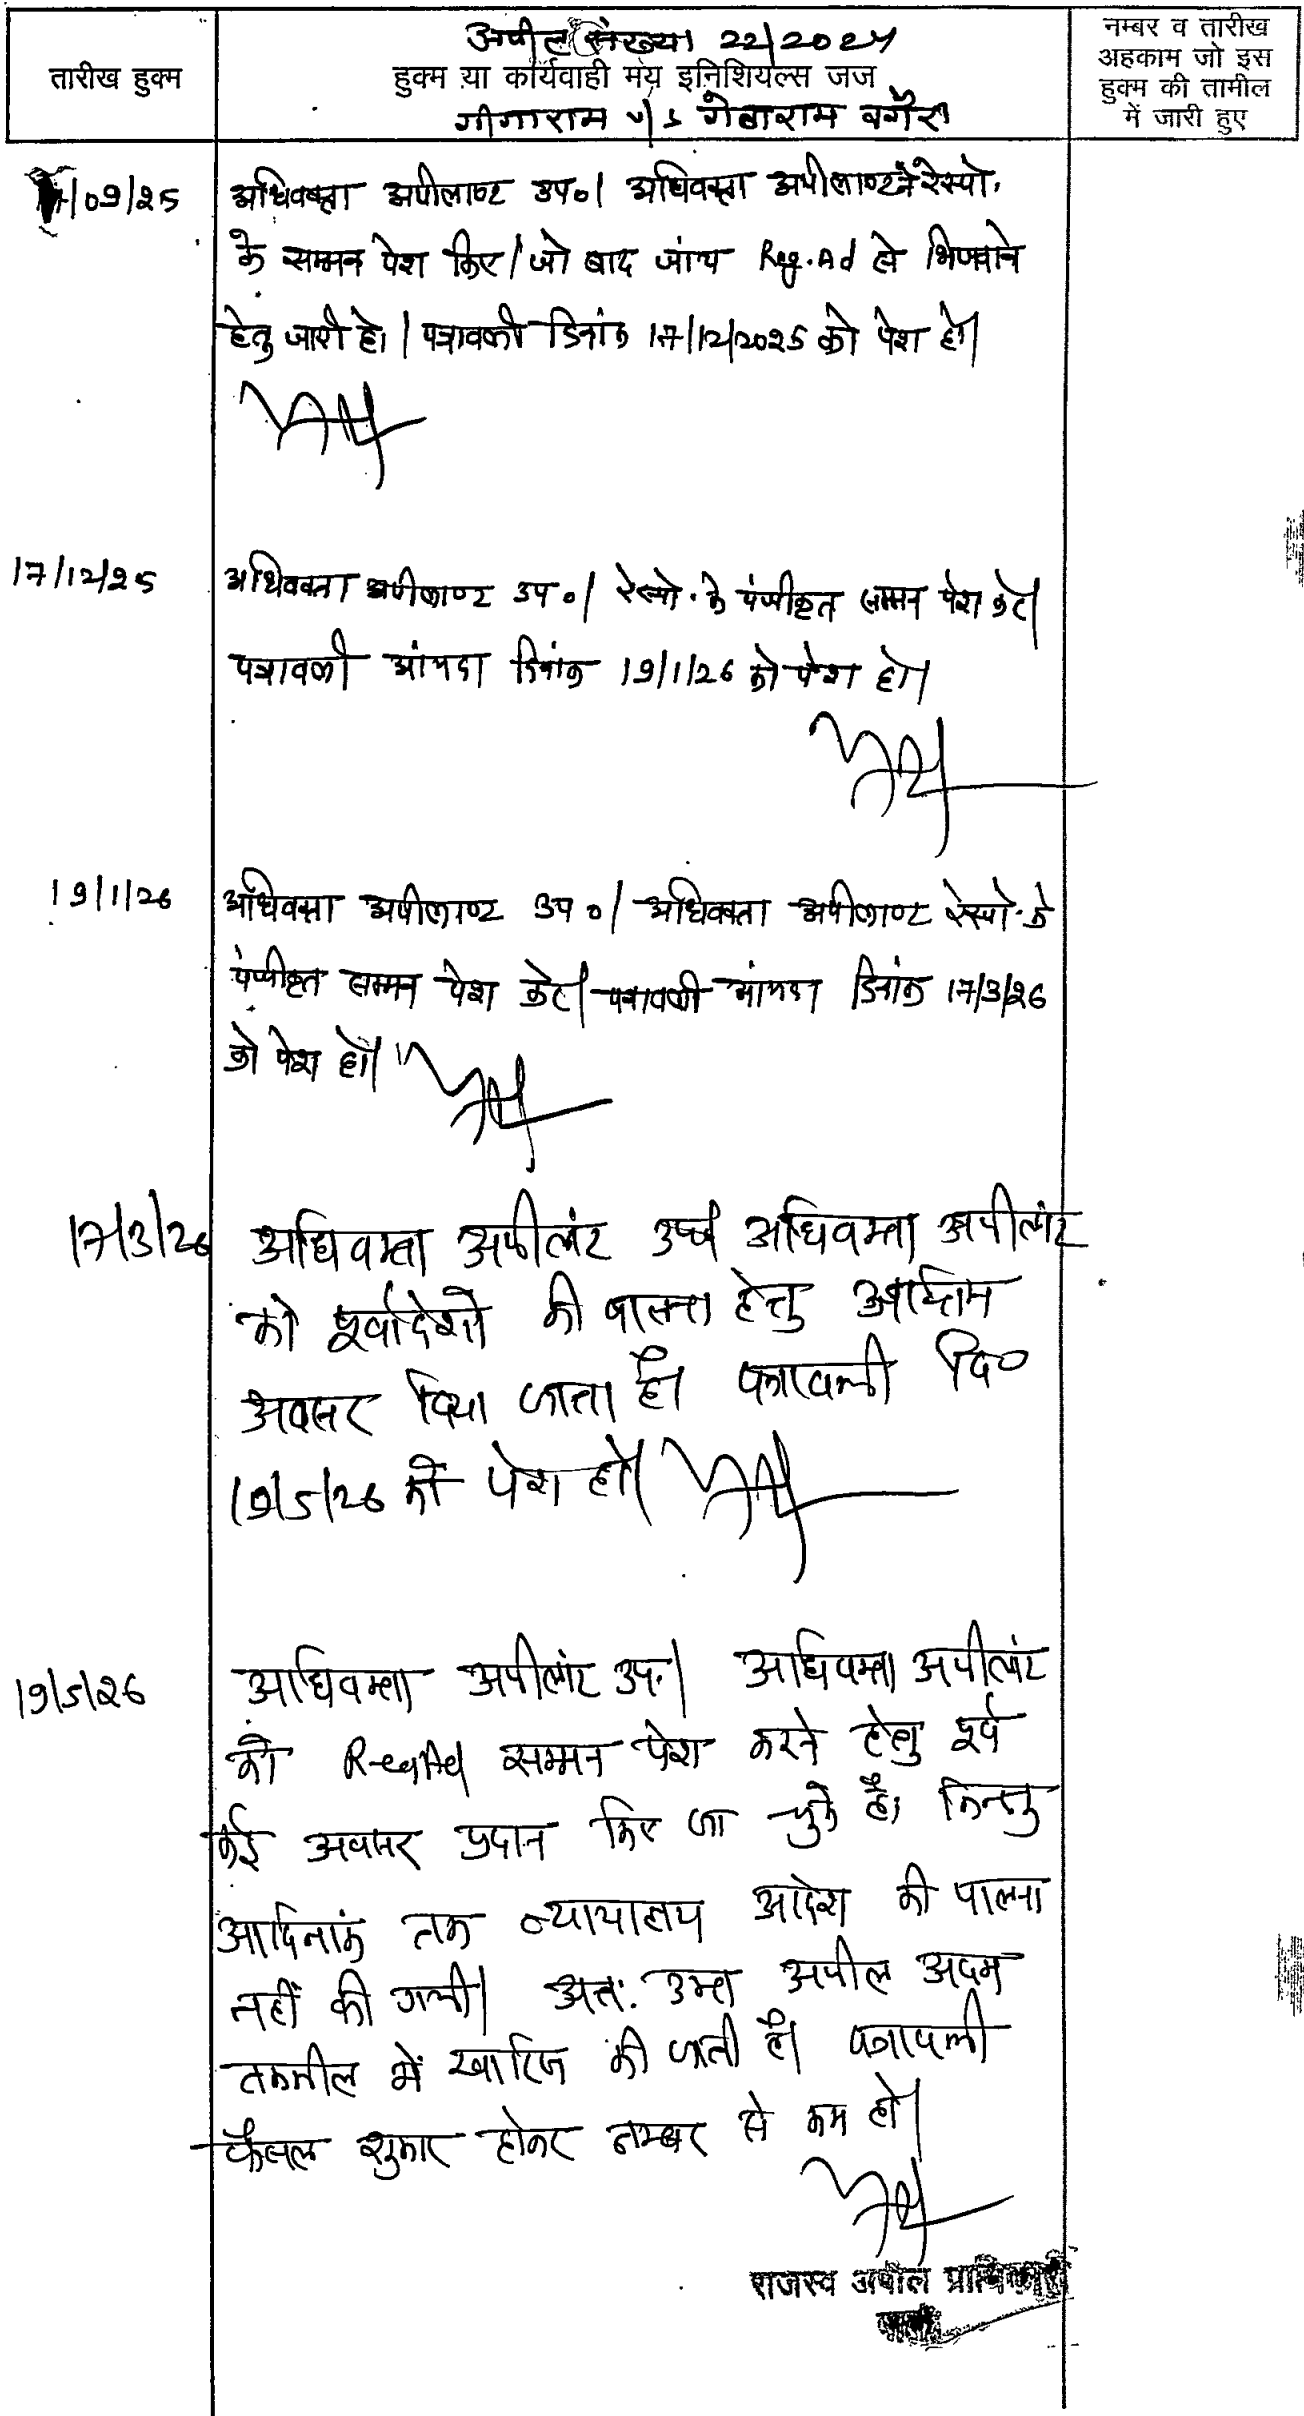 अपील संख्या 22/2024
तारीख हुक्म
हुक्म या कार्यवाही मय इनिशियल्स जज
गीगाराम v/s गेबाराम वगैरा
नम्बर व तारीख
अहकाम जो इस
हुक्म की तामील
में जारी हुए
/09/25
अधिवक्ता अपीलाण्ट उप०। अधिवक्ता अपीलाण्ट ने रेस्पो.
के सम्मन पेश किए। जो बाद जांच Reg.Ad से भिजवाने
हेतु जारी हो। पत्रावली दिनांक 17/12/2025 को पेश हो।
17/12/25
अधिवक्ता अपीलाण्ट उप०। रेस्पो. के पंजीकृत सम्मन पेश करे।
पत्रावली आंयदा दिनांक 19/1/26 को पेश हो।
19/1/26
अधिवक्ता अपीलाण्ट उप०। अधिवक्ता अपीलाण्ट रेस्पो. के
पंजीकृत सम्मन पेश करे। पत्रावली आंयदा दिनांक 17/3/26
को पेश हो।
17/3/26
अधिवक्ता अपीलांट उप० अधिवक्ता अपीलांट
को पूर्वादेशों की पालना हेतु अन्तिम
अवसर दिया जाता है। पत्रावली दि०
19/5/26 को पेश हो।
19/5/26
अधिवक्ता अपीलांट उप.। अधिवक्ता अपीलांट
को RegAd सम्मन पेश करने हेतु पूर्व
कई अवसर प्रदान किए जा चुके है, किन्तु
आदिनांक तक न्यायालय आदेश की पालना
नहीं की गयी। अत: उक्त अपील अदम
तकमील में खारिज की जाती है। पत्रावली
फैसल शुमार होकर नम्बर से कम हो।
राजस्व अपील प्राधिकारी